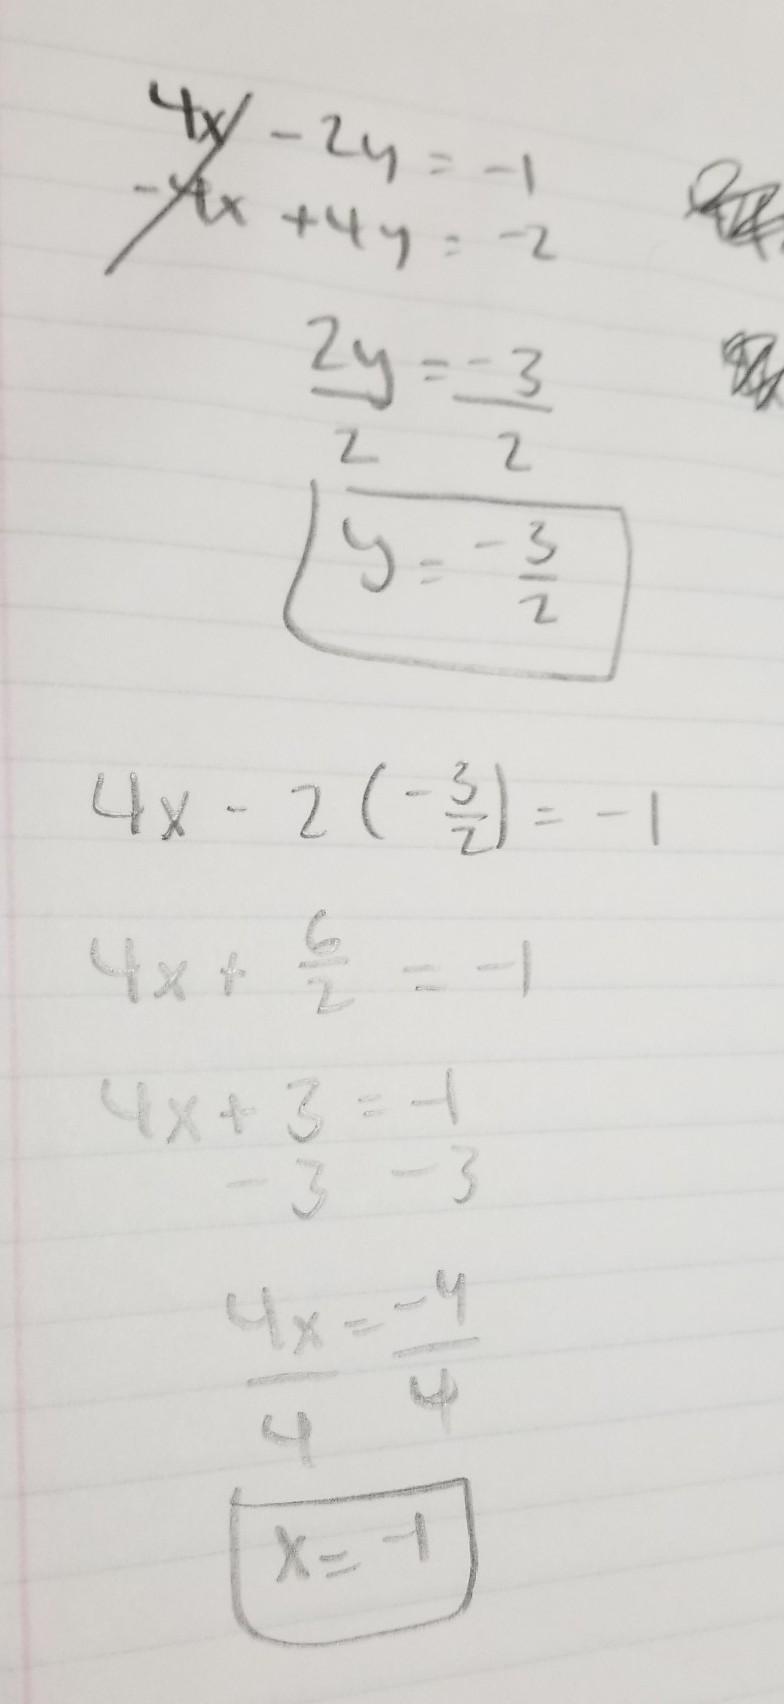 4x - 2y = -1
-4x + 4y = -2
2y = -3
2 2
y = -3/2
4x - 2(-3/2) = -1
4x + 6/2 = -1
4x + 3 = -1
-3 -3
4x = -4
4 4
x = -1